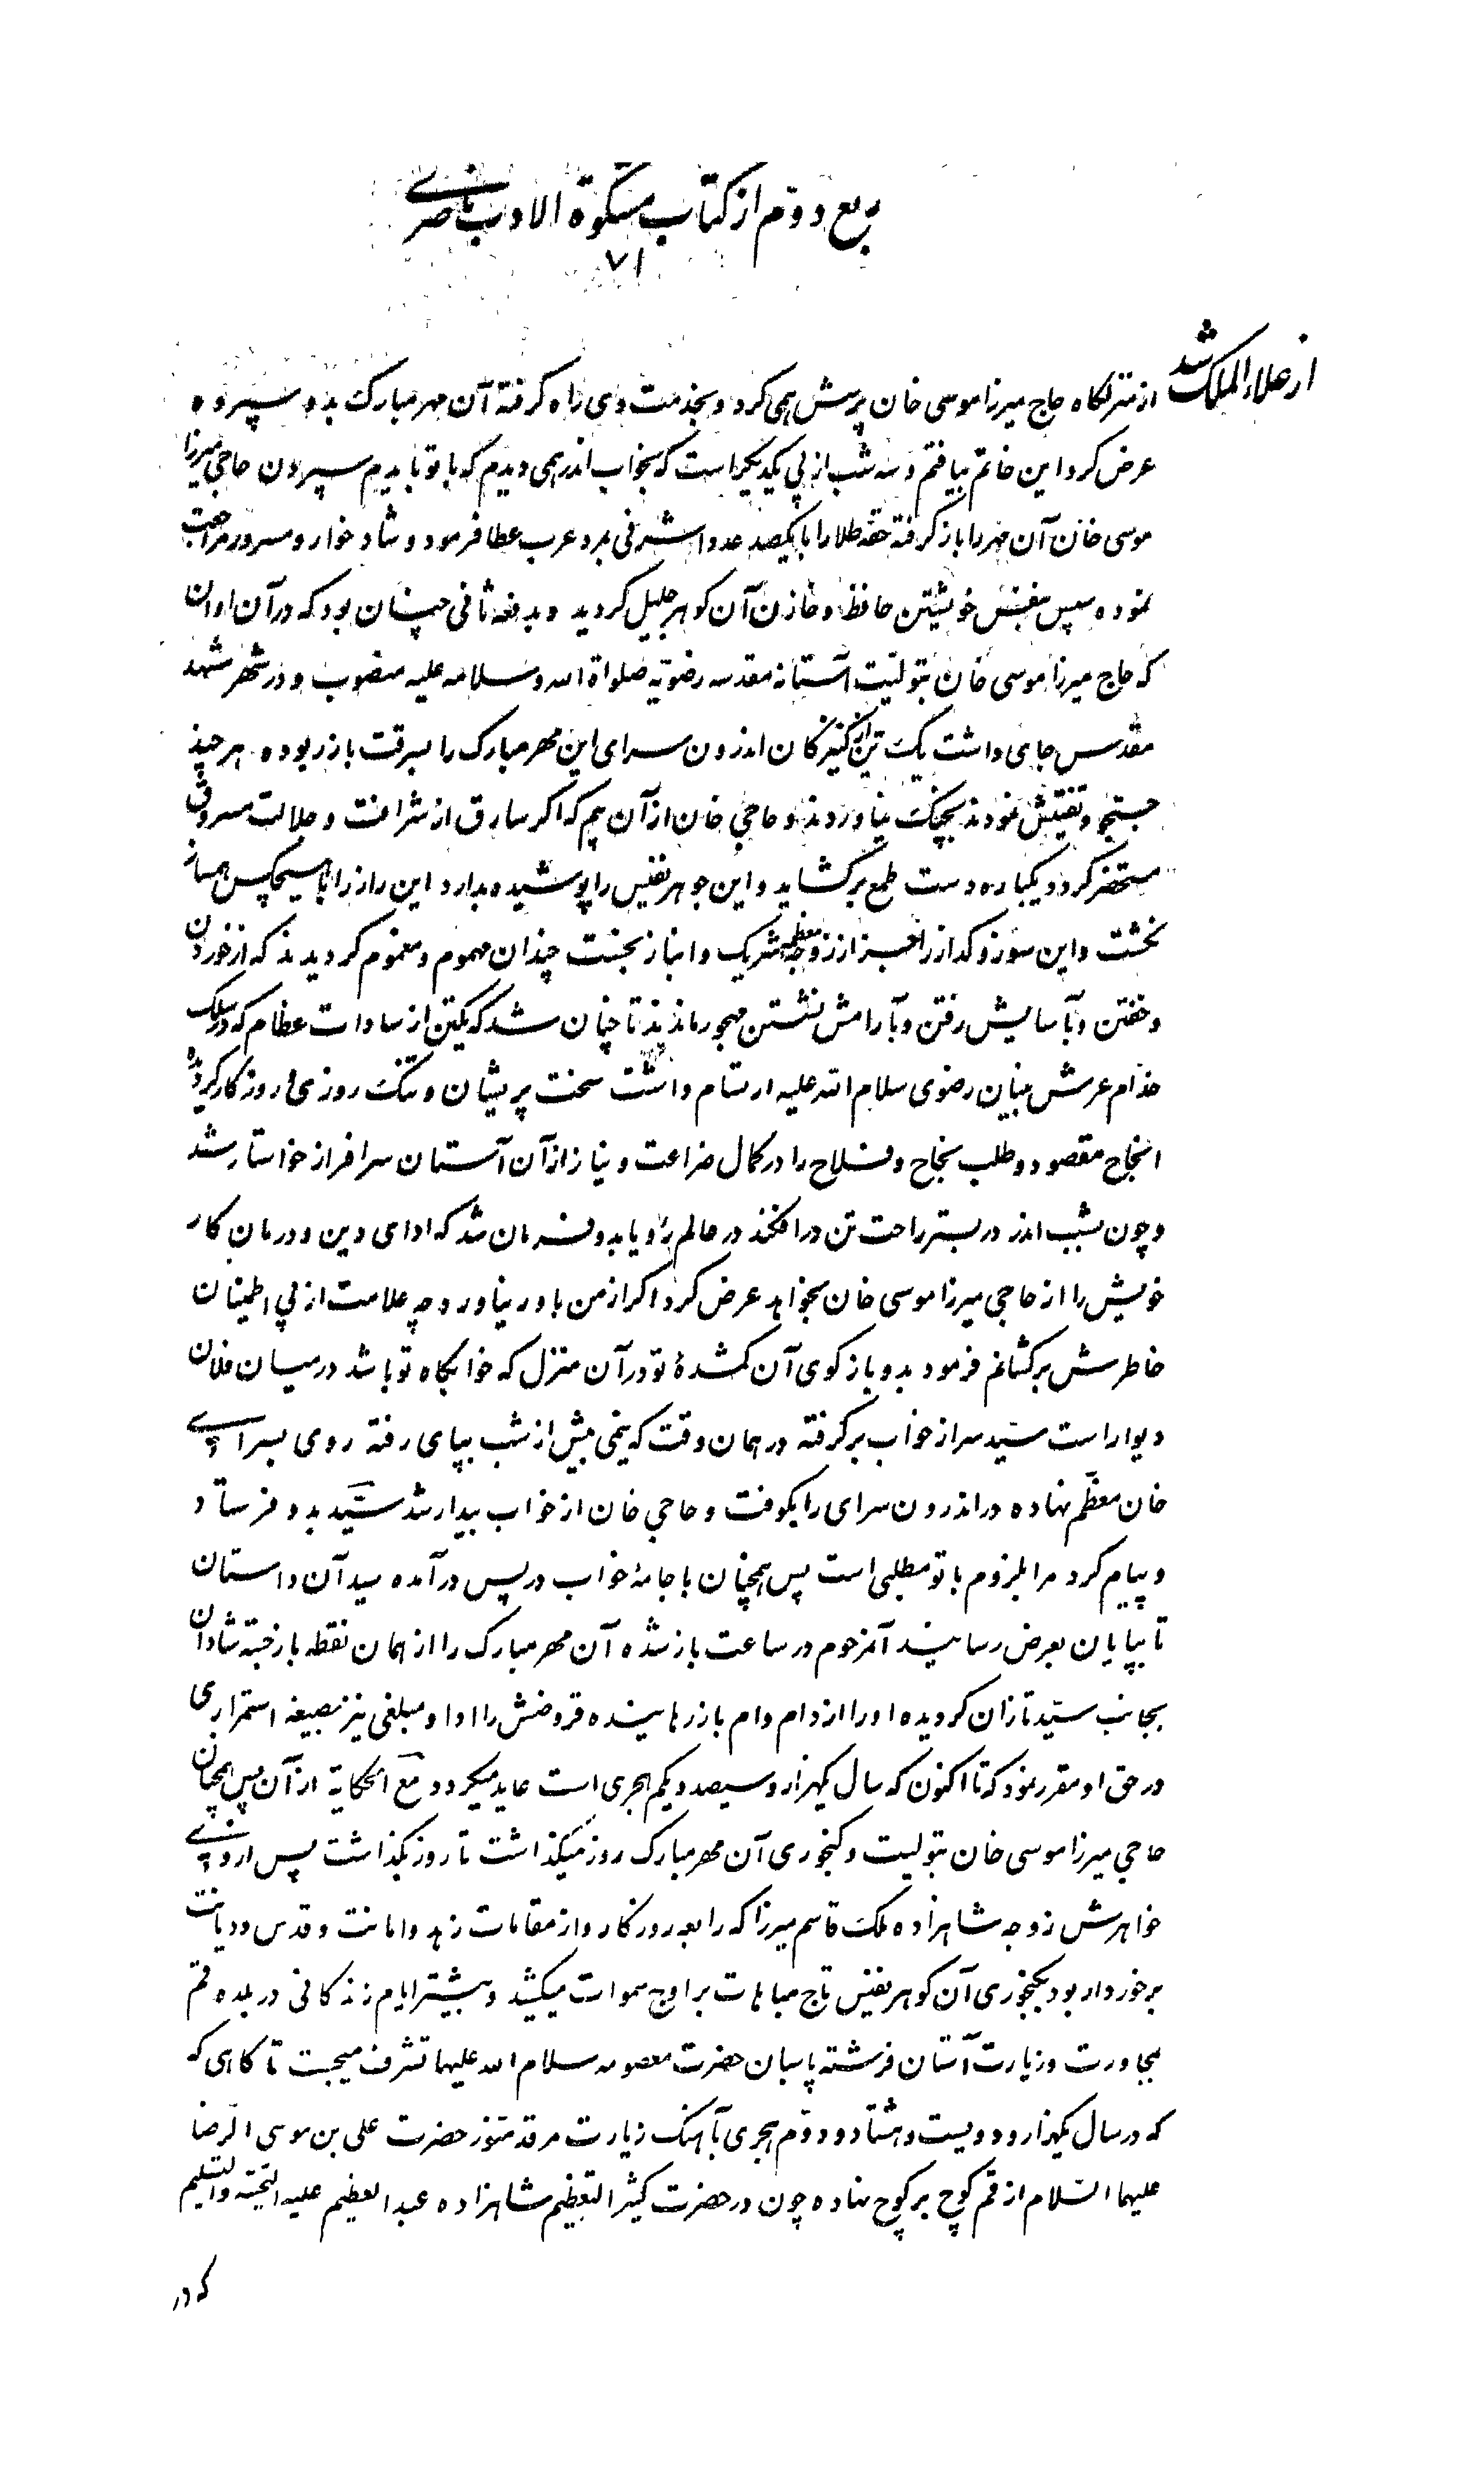 ربع دوم از کتاب مشکوة الادب ناصری
۷۱
از علاء الملک شد
از منزلگاه حاج میرزا موسی خان پرسش همی کرد و بخدمت وی راه گرفته آن مهر مبارک بدو سپرده
عرض کرد این خاتم بیافتم و سه شب از پی یکدیگر است که بخواب اندر همی دیدم که با تو بایدم سپردن حاجی میرزا
موسی خان آن مهر را باز گرفته حقه طلا را با یکصد عدد اشرفی بمرد عرب عطا فرمود و شادخوار و مسرور مراجعت
نموده سپس بنفس خویشتن حافظ و خازن آن گوهر جلیل گردید و بدفعه ثانی چنان بود که در آن اوان
که حاج میرزا موسی خان بتولیت آستانه مقدسه رضویه صلواة الله و سلامه علیه منصوب و در شهر مشهد
مقدس جای داشت یک تن از کنیزکان اندرون سرای این مهر مبارک را بسرقت باز ربوده هر چند
جستجو و تفتیش نمودند بچنگ نیاوردند و حاجی خان از آن بیم که اگر سارق از شرافت و جلالت مسروق
مستحضر گردد یکباره دست طمع برگشاید و این جوهر نفیس را پوشیده بدارد این راز را با هیچکس همساز
نخشت و این سوز و گداز را بجز از زوجه معظمه شریک و انباز نجست چندان مهموم و مغموم گردیدند که از خوردن
و خفتن و بآسایش رفتن و بآرامش نشستن مهجور ماندند تا چنان شد که یکتن از سادات عظام که در سلک
خدام عرش بنیان رضوی سلام الله علیه ارتسام داشت سخت پریشان و تنگ روزی و روزگار گردیده
انجاح مقصود و طلب نجاح و فلاح را در کمال ضراعت و نیاز از آن آستان سرافراز خواستار شد
و چون بشب اندر در بستر راحت تن در افکند در عالم رؤیا بدو فرمان شد که ادای دین و درمان کار
خویش را از حاجی میرزا موسی خان بخواهد عرض کرد اگر از من باور نیاورد چه علامت از پی اطمینان
خاطرش برگشانم فرمود بدو باز گوی آن گمشدهٔ تو در آن منزل که خوابگاه تو باشد در میان فلان
دیوار است سید سر از خواب برگرفته در همان وقت که نیمی بیش از شب بپای رفته روی بسرای
خان معظم نهاده در اندرون سرای را بکوفت و حاجی خان از خواب بیدار شد سید بدو فرستاد
و پیام کرد مرا بلزوم با تو مطلبی است پس همچنان با جامهٔ خواب در پس در آمده سید آن داستان
تا بپایان بعرض رسانید آنمرحوم در ساعت باز شده آن مهر مبارک را از همان نقطه باز جسته شادان
بجانب سید تازان گردیده او را از دام وام باز رهانیده قروضش را ادا و مبلغی نیز بصیغه استمراری
در حق او مقرر نمود که تا اکنون که سال یکهزار و سیصد و یکم هجری است عاید میگردد مع الحکایة از آن پس همچنان
حاجی میرزا موسی خان بتولیت و گنجوری آن مهر مبارک روز میگذاشت تا روز بگذاشت پس از وی
خواهرش زوجه شاهزاده ملک قاسم میرزا که رابعه روزگار و از مقامات زهد و امانت و قدس و دیانت
برخوردار بود بگنجوری آن گوهر نفیس تاج مباهات بر اوج سموات میکشید و بیشتر ایام زندگانی در بلده قم
بمجاورت و زیارت آستان فرشته پاسبان حضرت معصومه سلام الله علیها تشرف میجست تا گاهی که
که در سال یکهزار و دویست و هشتاد و دوم هجری بآهنگ زیارت مرقد منور حضرت علی بن موسی الرضا
علیهما السلام از قم کوچ بر کوچ نهاده چون در حضرت کثیر التعظیم شاهزاده عبد العظیم علیه التحیة والتسلیم
که در